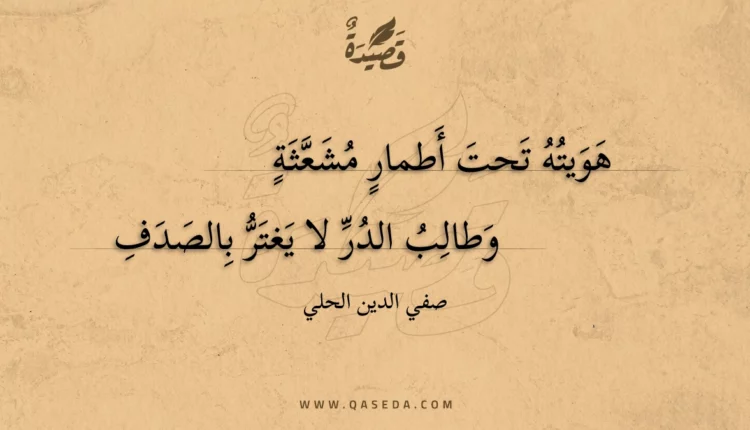 قَصِيْدَةٌ
هَوَيتُهُ تَحتَ أَطمارٍ مُشَعَّثَةٍ
وَطالِبُ الدُرِّ لا يَغتَرُّ بِالصَدَفِ
صفي الدين الحلي
WWW.QASEDA.COM